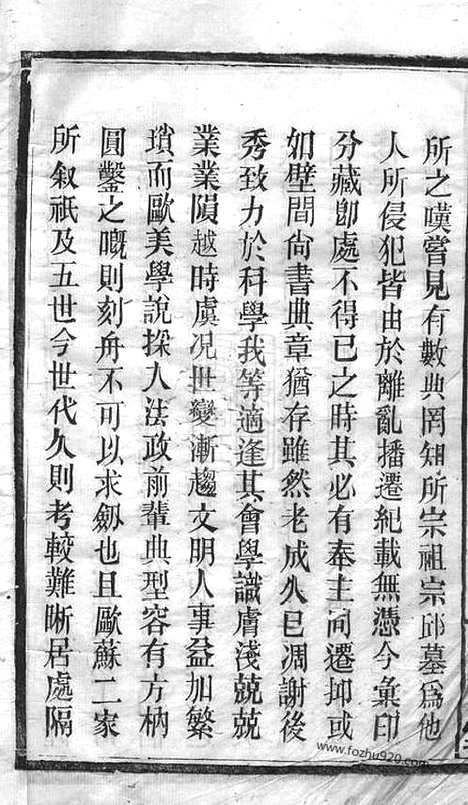 所之嘆嘗見有數典罔知所宗祖宗邱墓為他
人所侵犯皆由於離亂播遷紀載無憑今彙印
分藏卽處不得已之時其必有奉主同遷抑或
如壁間尙書典章猶存雖然老成久已凋謝後
秀致力於科學我等適逢其會學識膚淺兢兢
業業隕越時虞况世變漸趨文明人事益加繁
瑣而歐美學說採入法政前輩典型容有方枘
圓鑿之嘅則刻舟不可以求劒也且歐蘇二家
所叙祇及五世今世代久則考較難晣居處隔
www.fozhu920.com